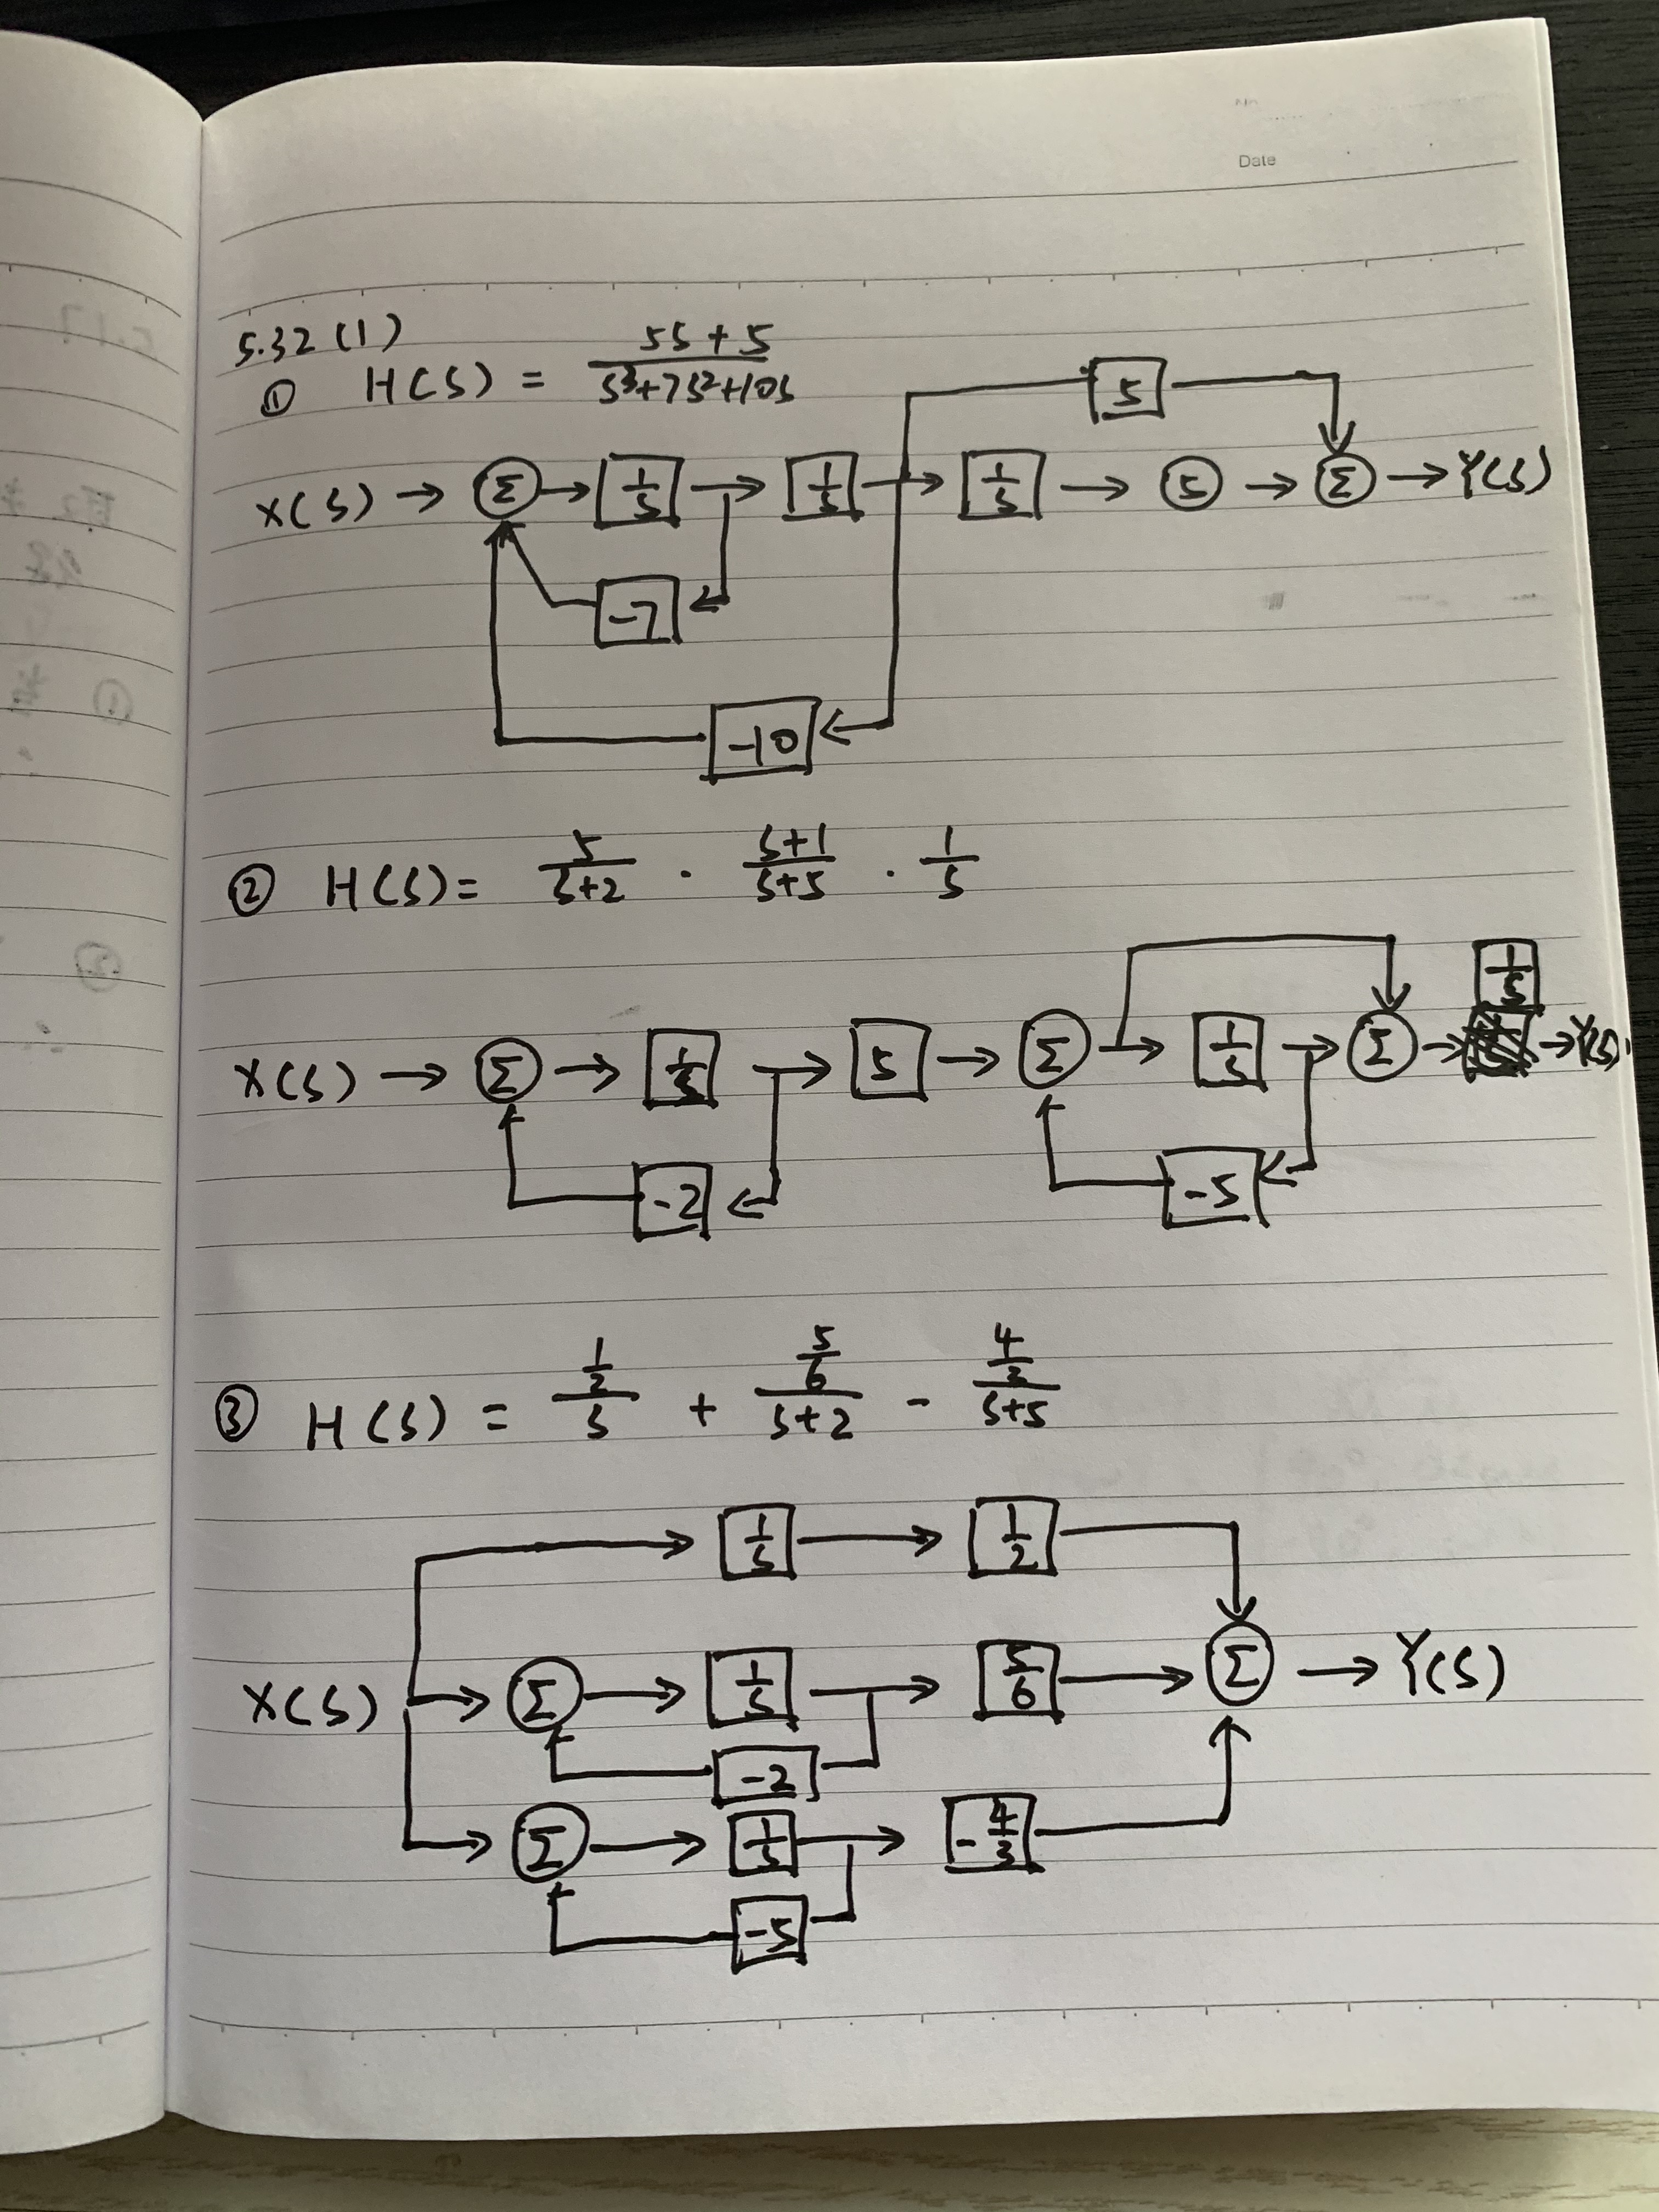 Date
5.32 (1)
① H(s) = (5s+5)/(s³+7s²+10s)
5
X(s) → Σ → 1/s → 1/s → 1/s → ⑤ → Σ → Y(s)
-7
-10
② H(s) = 5/(s+2) · (s+1)/(s+5) · 1/s
1/s
X(s) → Σ → 1/s → 5 → Σ → 1/s → Σ → → Y(s)
-2 -5
③ H(s) = (1/2)/s + (5/6)/(s+2) - (4/3)/(s+5)
1/s → 1/2
X(s) → Σ → 1/s → 5/6 → Σ → Y(s)
-2
Σ → 1/s → -4/3
-5